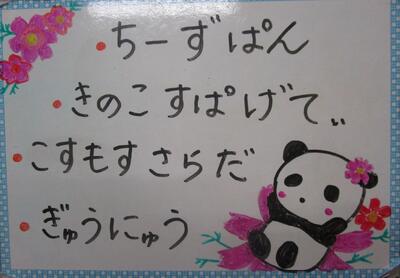 ・ちーずぱん
・きのこすぱげてぃ
・こすもすさらだ
・ぎゅうにゅう